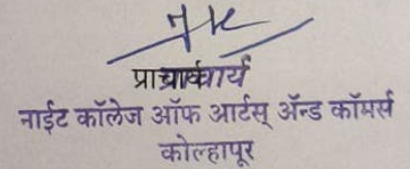 प्राचार्य
नाईट कॉलेज ऑफ आर्टस् ॲन्ड कॉमर्स
कोल्हापूर